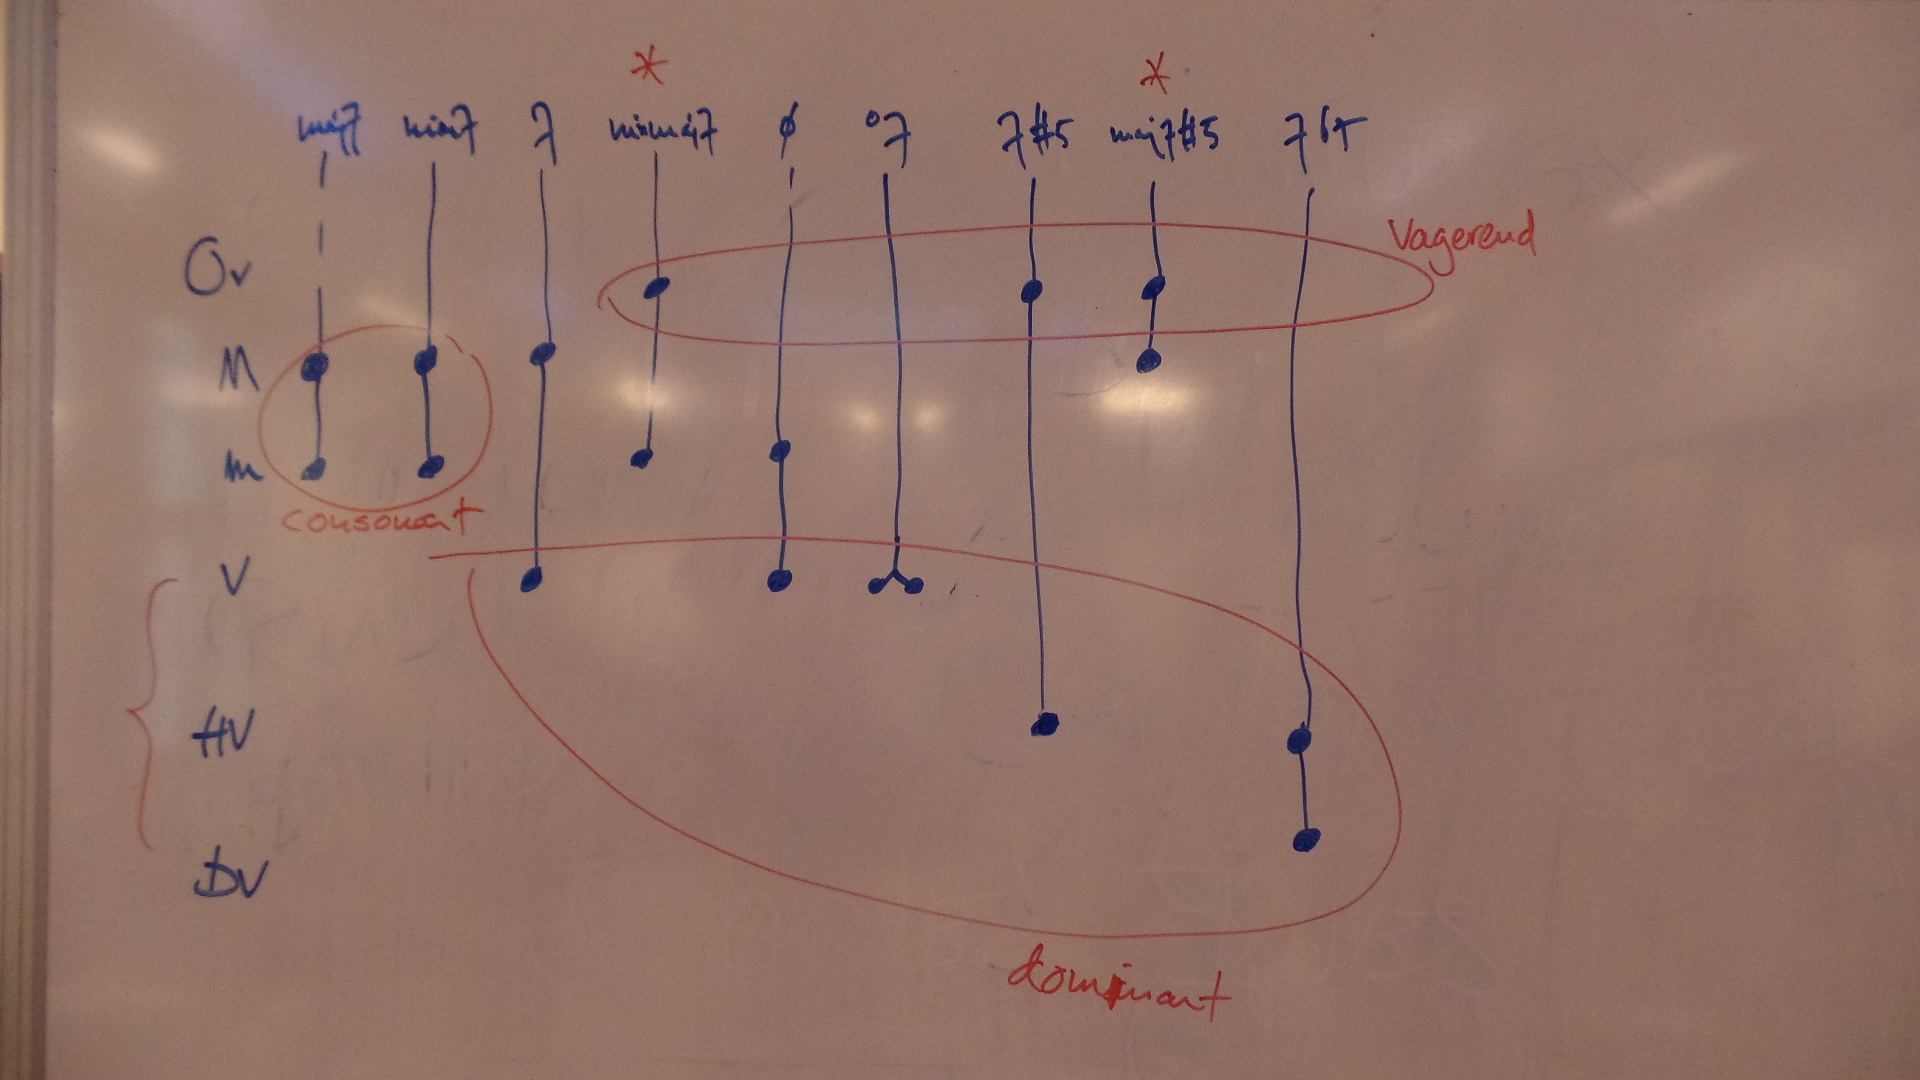 * *
maj7 min7 7 minmaj7 ø °7 7#5 maj7#5 7b5
Ov
Vagerend
M
m
consonant
V
HV
DV
dominant